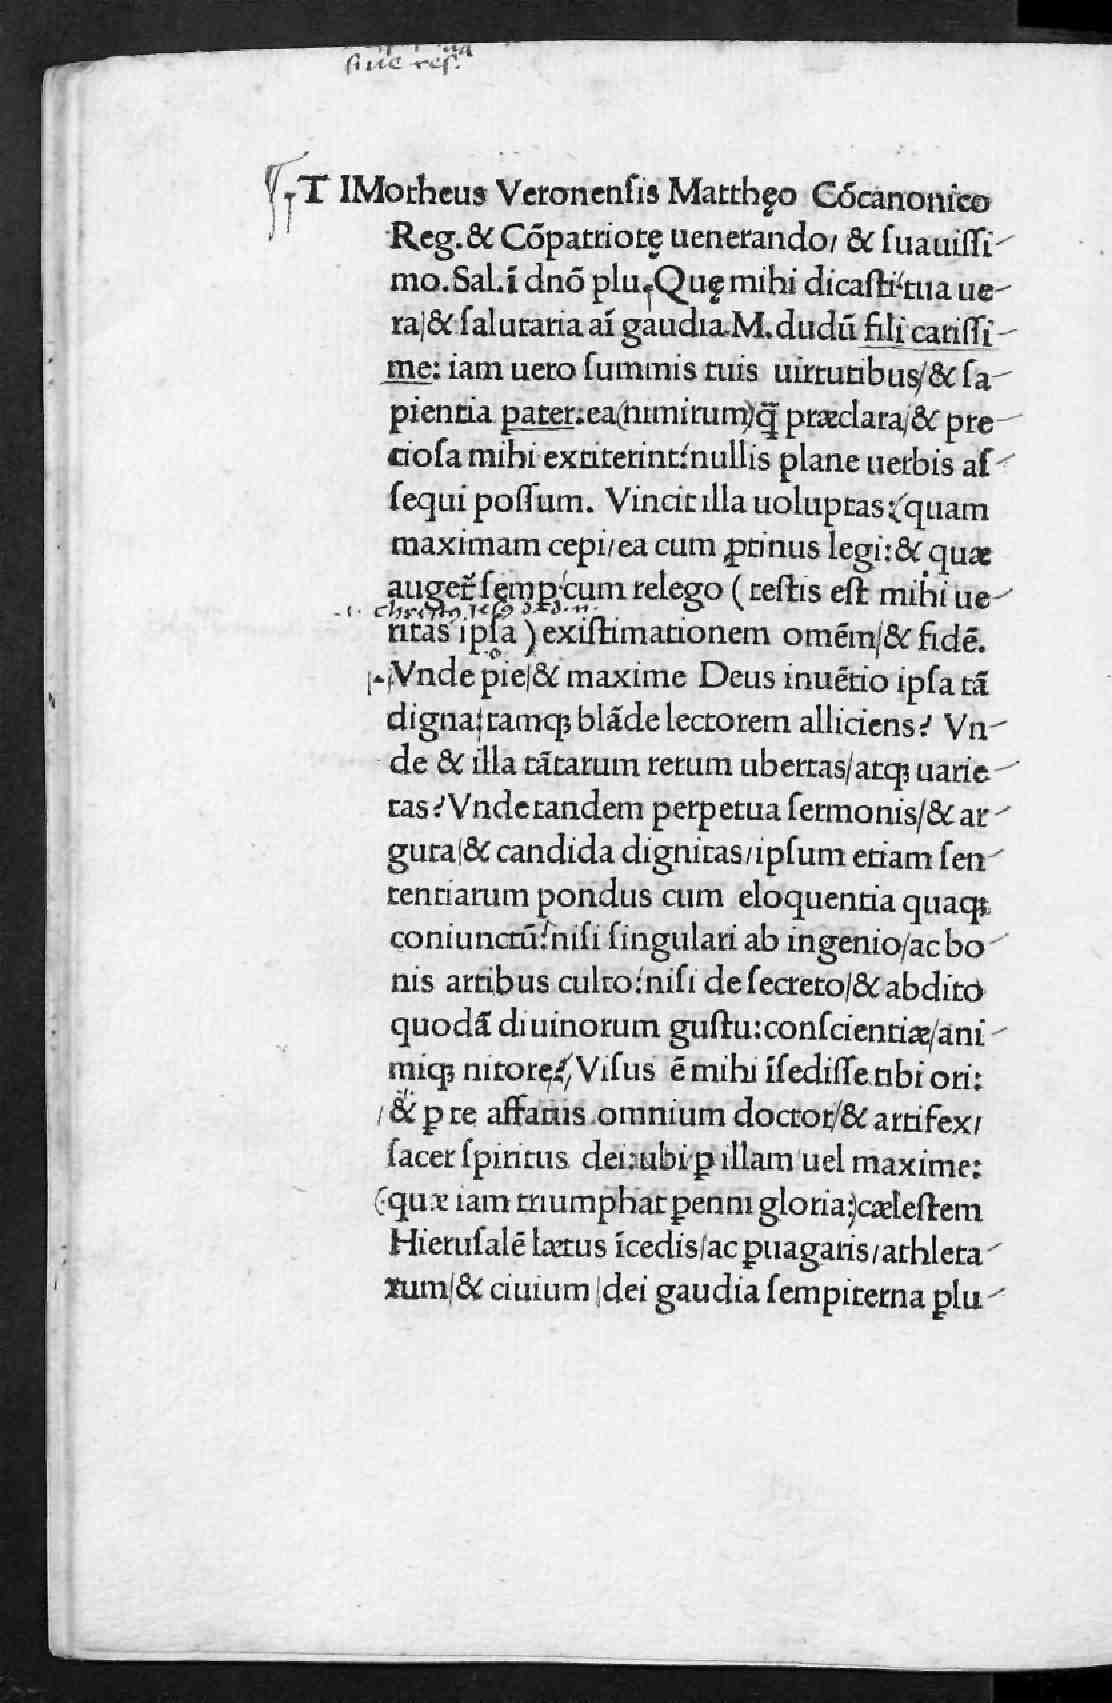 siue res.
TIMotheus Veronensis Matthęo Cōcanonico
Reg. & Cōpatriotę uenerando/ & suauissi-
mo. Sal. ī dnō plu. Quę mihi dicasti tua ue-
ra/ & salutaria aī gaudia M. dudū fili carissi-
me: iam uero summis tuis uirtutibus/ & sa-
pientia pater: ea (nimirum) q̄ præclara/ & pre-
ciosa mihi extiterint: nullis plane uerbis as-
sequi possum. Vincit illa uoluptas: quam
maximam cepi/ ea cum ꝓtinus legi: & quæ
auget̄ semp cum relego (testis est mihi ue-
ritas ipsa) existimationem omēm/ & fidē.
Vnde pie/ & maxime Deus inuētio ipsa tā
digna: tamqꝫ blāde lectorem alliciens? Vn-
de & illa tātarum rerum ubertas/ atqꝫ uarie-
tas? Vnde tandem perpetua sermonis/ & ar-
guta/ & candida dignitas/ ipsum etiam sen-
tentiarum pondus cum eloquentia quaqꝫ
coniunctū: nisi singulari ab ingenio/ ac bo-
nis artibus culto: nisi de secreto/ & abdito
quodā diuinorum gustu: conscientiæ/ ani-
miqꝫ nitore? Visus ē mihi īsedisse tibi ori:
& p te affatus omnium doctor/ & artifex/
sacer spiritus dei: ubi ꝑ illam uel maxime:
(quæ iam triumphat ꝑenni gloria:) cælestem
Hierusalē lætus īcedis/ ac ꝑuagaris/ athleta-
rum/ & ciuium dei gaudia sempiterna ꝑlu-